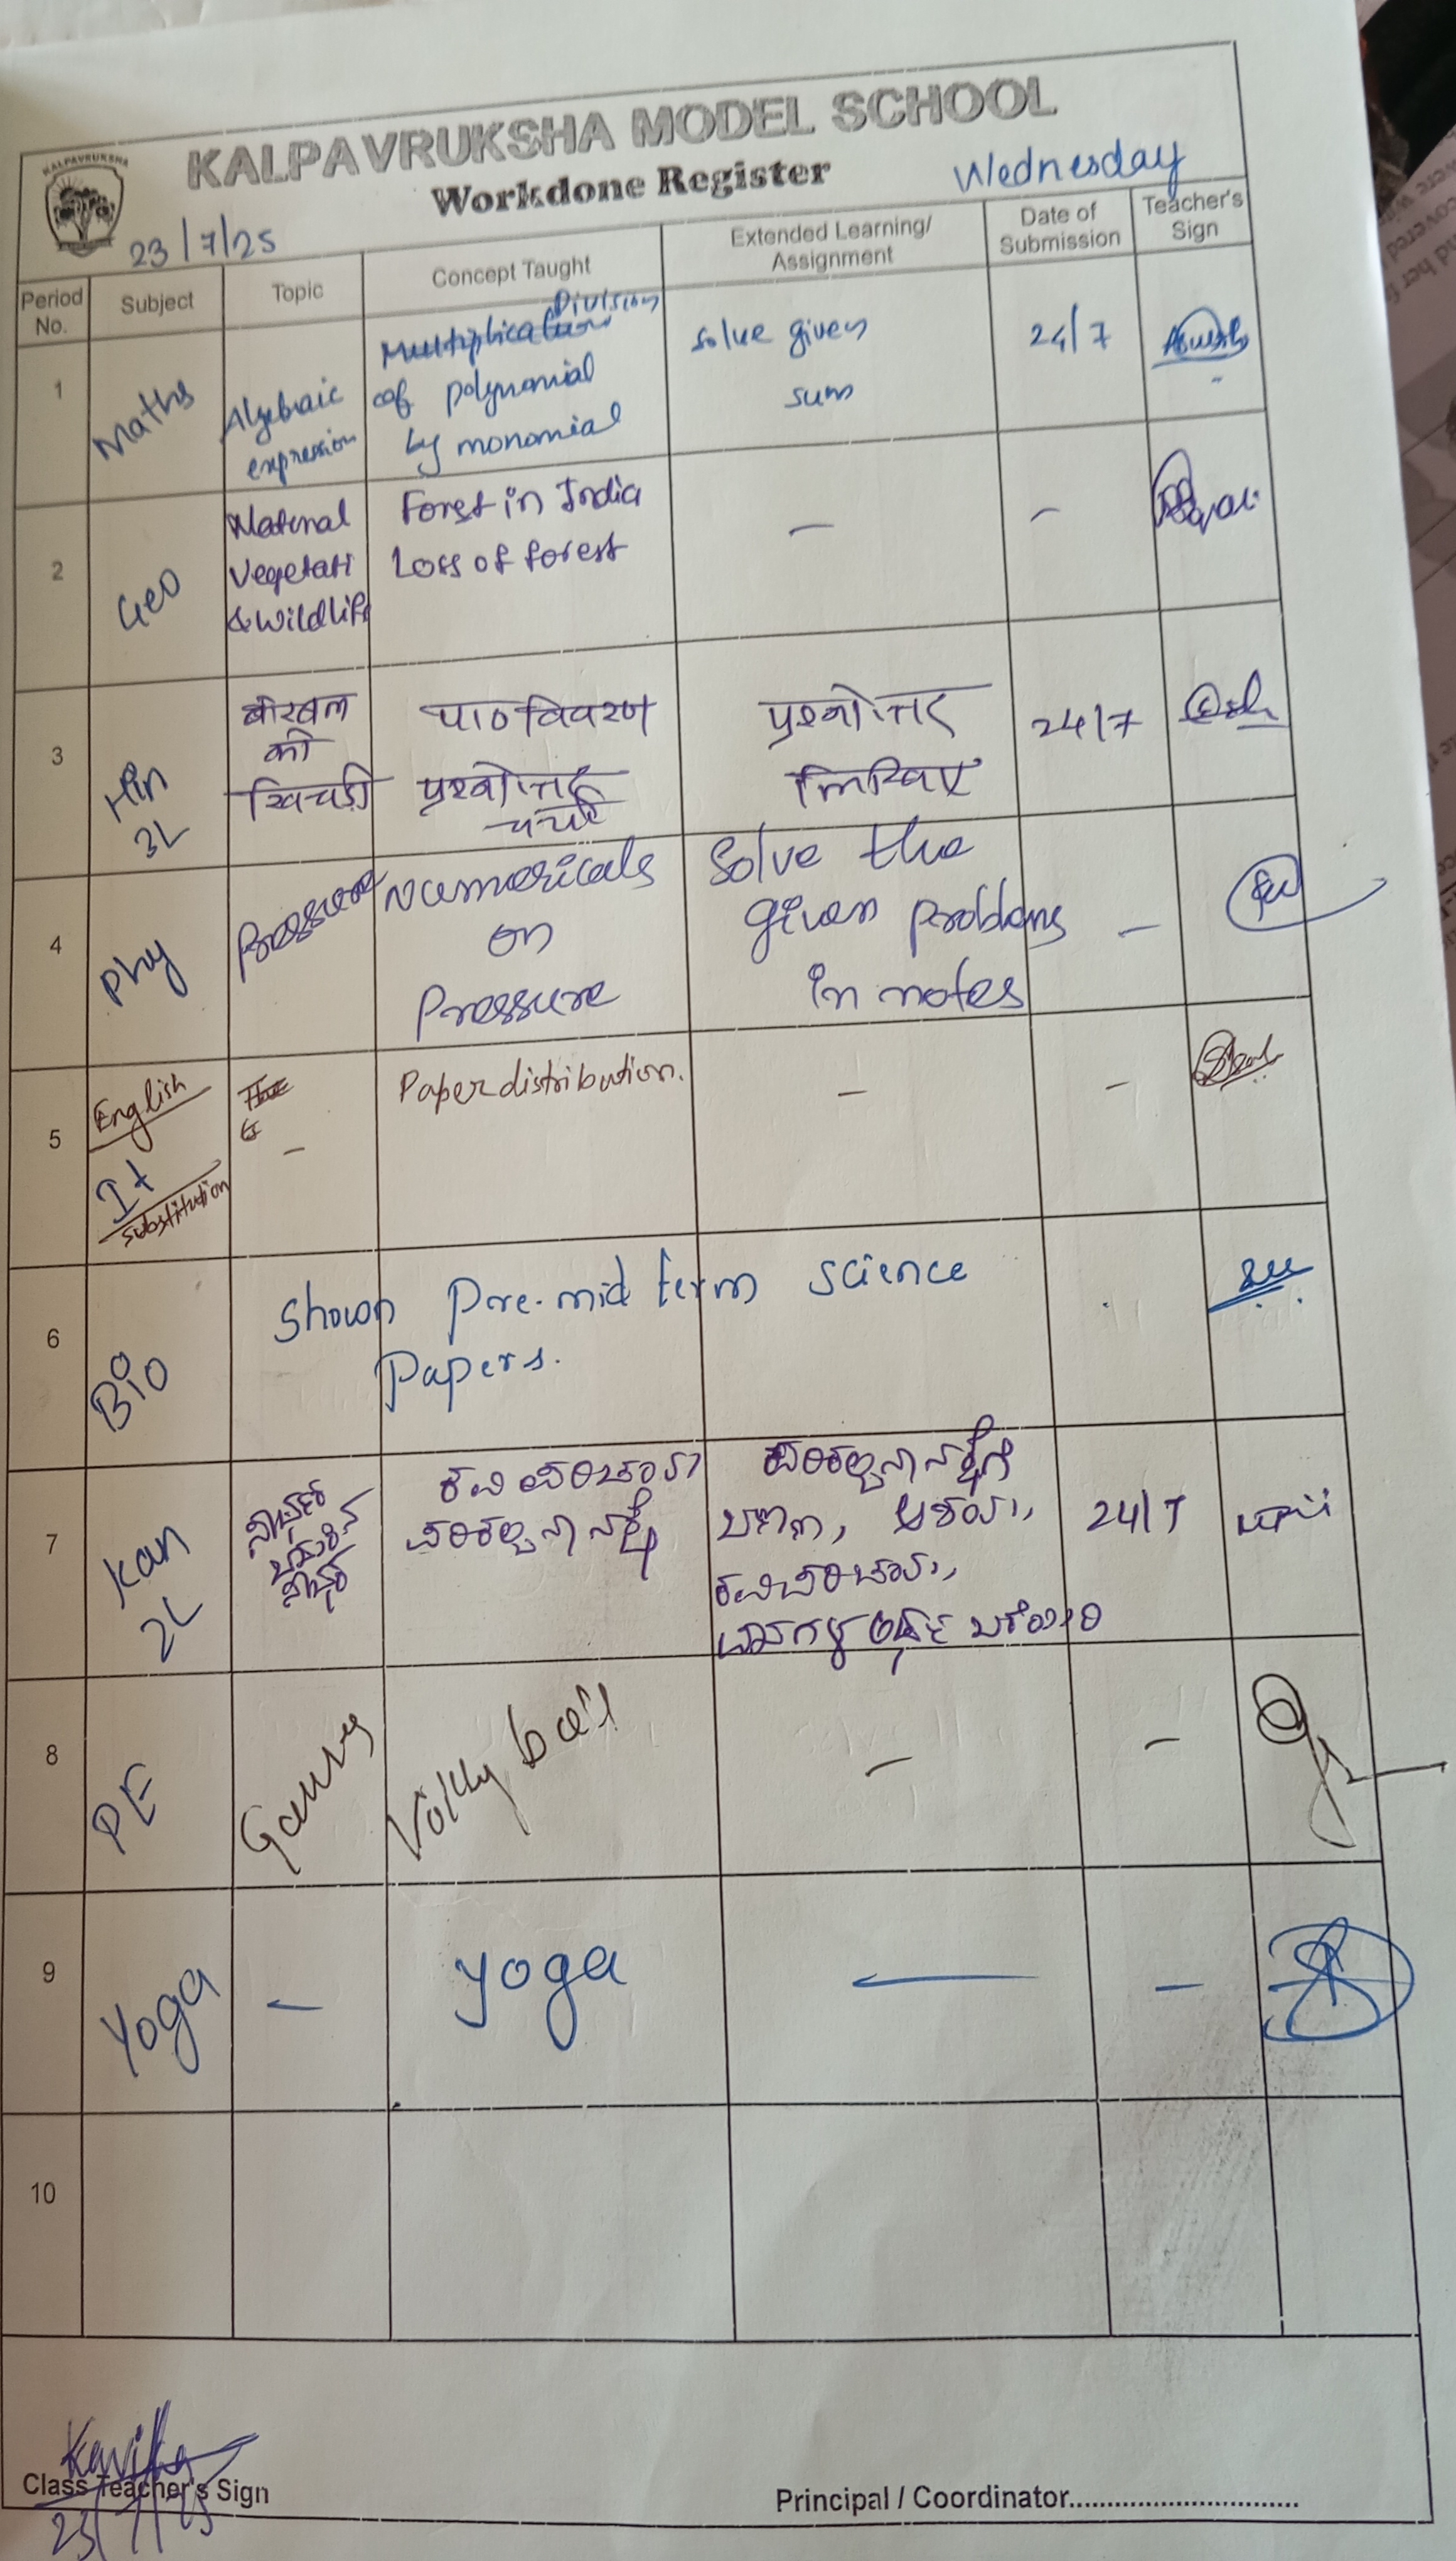 KALPAVRUKSHA
KALPAVRUKSHA MODEL SCHOOL
Workdone Register
Wednesday
23/7/25
Period No.
Subject
Topic
Concept Taught
Extended Learning/
Assignment
Date of
Submission
Teacher's
Sign
1
Maths
Algebraic
expression
Multiplication Division
of polynomial
by monomial
solve given
sum
24/7
2
Geo
Natural
Vegetati
& Wildlife
Forest in India
Loss of forest
—
—
3
Hin
3L
बीरबल
की
खिचड़ी
पाठ विवरण
प्रश्नोत्तर
चर्चा
प्रश्नोत्तर
लिखिए
24/7
4
Phy
Pressure
Numericals
on
Pressure
Solve the
given problems
in notes
—
5
English
It
substitution
The
—
Paper distribution.
—
—
6
Bio
Shown Pre-mid term science
Papers.
7
Kan
2L
ಕವಿ ಪರಿಚಯ
24/7
8
PE
Games
Volley ball
—
—
9
Yoga
—
Yoga
—
—
10
Kavitha
Class Teacher's Sign
23/7/25
Principal / Coordinator..............................